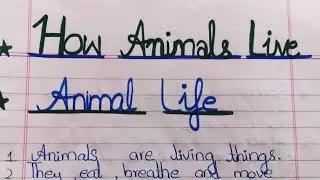 How Animals Live
Animal Life
1 Animals are living things.
2 They eat, breathe and move